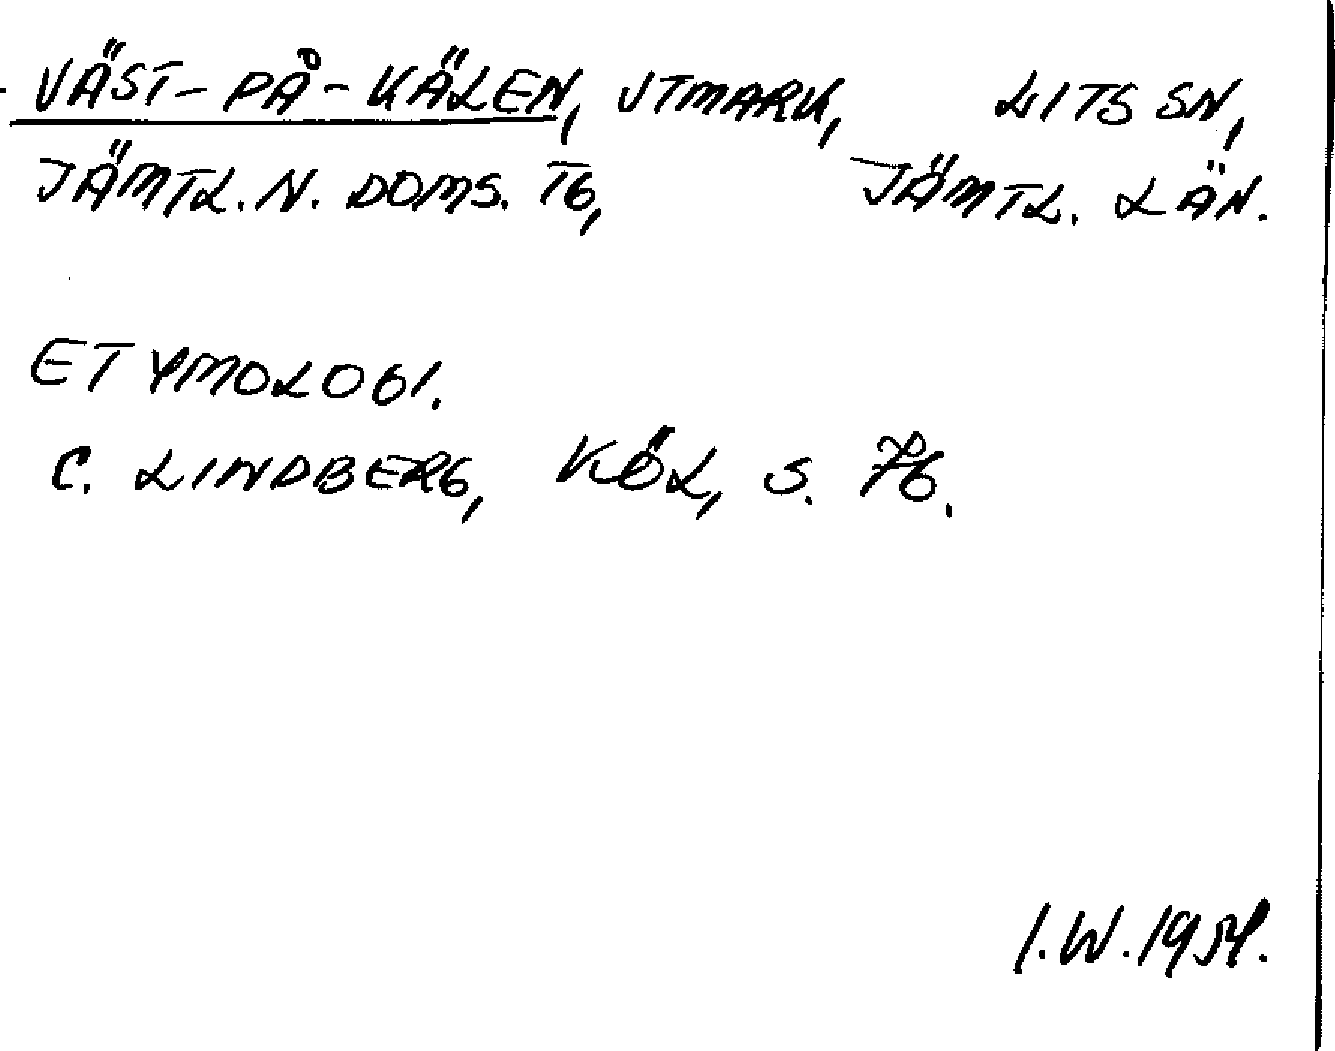 VÄST-PÅ-KÄLEN, UTMARK, LITS SN,
JÄMTL. N. DOMS. TG, JÄMTL. LÄN.
ETYMOLOGI.
C. LINDBERG, KÖL, S. 76.
I.W. 1954.